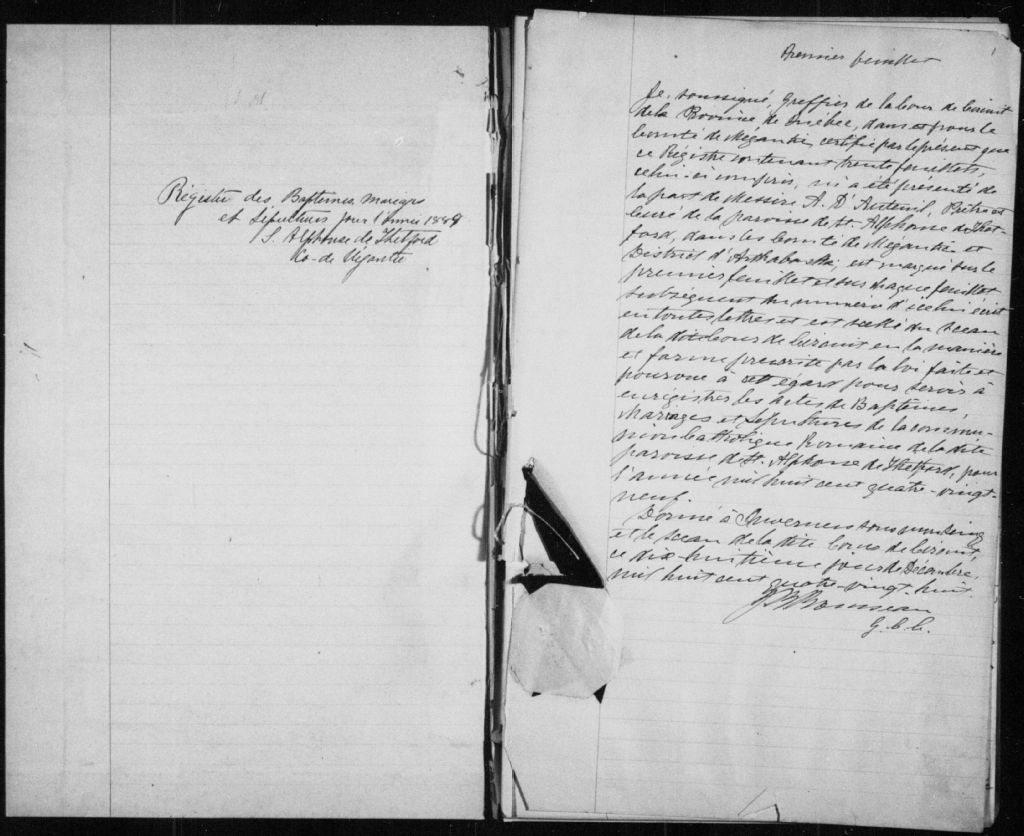 Régistre des Baptemes mariages
et Sépultures pour l'année 1889
S. Alphonse de Thetford
Co- de Mégantic
Premier feuillet
1
Je, soussigné, Greffier de la Cour de Circuit
de la Province de Québec, dans et pour le
Comté de Mégantic, certifie par le présent que
ce Régistre contenant trente feuillets,
celui-ci compris, m'a été présenté de
la part de Messire A. D'Auteuil, Prêtre et
Curé de la paroisse de St. Alphonse de Thet-
ford, dans les Comté de Mégantic et
District d'Arthabaska, est marqué sur le
premier feuillet et sur chaque feuillet
subséquent du numéro d'icelui écrit
en toutes lettres et est scellé du sceau
de la dite Cour de Circuit en la manière
et forme prescrite par la loi faite et
pourvue à cet égard pour servir à
enrégistrer les actes de Baptêmes,
Mariages et Sépultures de la commu-
nion Catholique Romaine de la dite
paroisse de St. Alphonse de Thetford, pour
l'année mil huit cent quatre-vingt-
neuf.
Donné à Inverness sous mon seing
et le sceau de la dite Cour de Circuit,
ce dix-huitième jour de Décembre,
mil huit cent quatre-vingt-huit.
G. C. C.